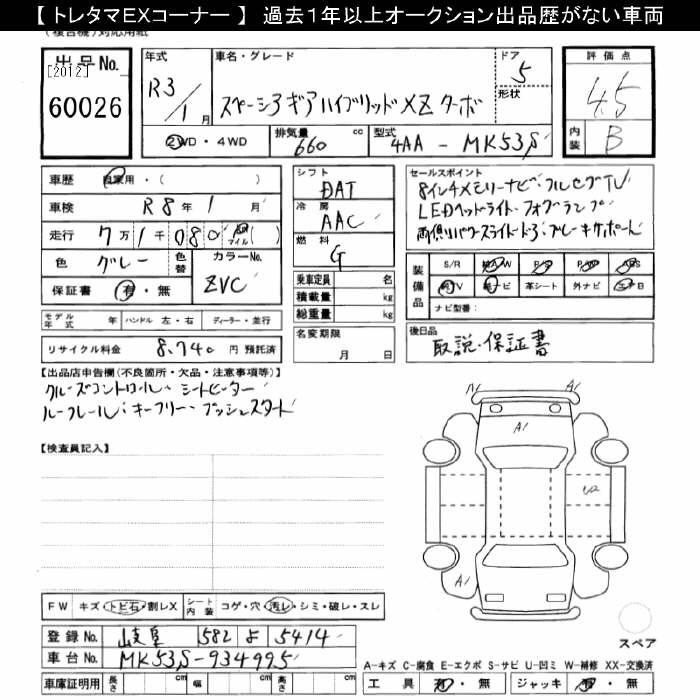 【トレタマEXコーナー】 過去1年以上オークション出品歴がない車両
(複合機)対応用紙
出品No. [2012] 60026
年式 R3/1月
車名・グレード スペーシアギアハイブリッドXZターボ
ドア 5
形状
評価点 4.5
内装 B
2WD・4WD 排気量 660 cc 型式 4AA-MK53S
車歴 自家用・( )
車検 R8年1月
走行 7万1千080 km マイル( )
色 グレー 色替 カラーNo. ZVC
保証書 有・無
モデル年式 年 ハンドル 左・右 ディーラー・並行
リサイクル料金 8,740 円 預託済
シフト DAT
冷房 AAC
燃料 G
乗車定員 名
積載量 kg
総重量 kg
名変期限 月 日
セールスポイント
8インチメモリーナビ・フルセグTV
LEDヘッドライト・フォグランプ
両側パワースライドドア・ブレーキサポート
装備品 S/R A/W P/S P/W ABS
TV ナビ 革シート 外ナビ エアB
ナビ型番:
後日品 取説・保証書
【出品店申告欄(不良箇所・欠品・注意事項等)】
クルーズコントロール・シートヒーター
ルーフレール・キーフリー・プッシュスタート
【検査員記入】
A1 A1
A1
U2
A1
FW キズ・トビ石・割レX シート内装 コゲ・穴・汚レ・シミ・破レ・スレ
登録No. 岐阜 582 よ 5414
車台No. MK53S-934995
車庫証明用 長さ cm 幅 cm 高さ cm
スペア
A-キズ C-腐食 E-エクボ S-サビ U-凹ミ W-補修 XX-交換済
工具 有・無 ジャッキ 有・無